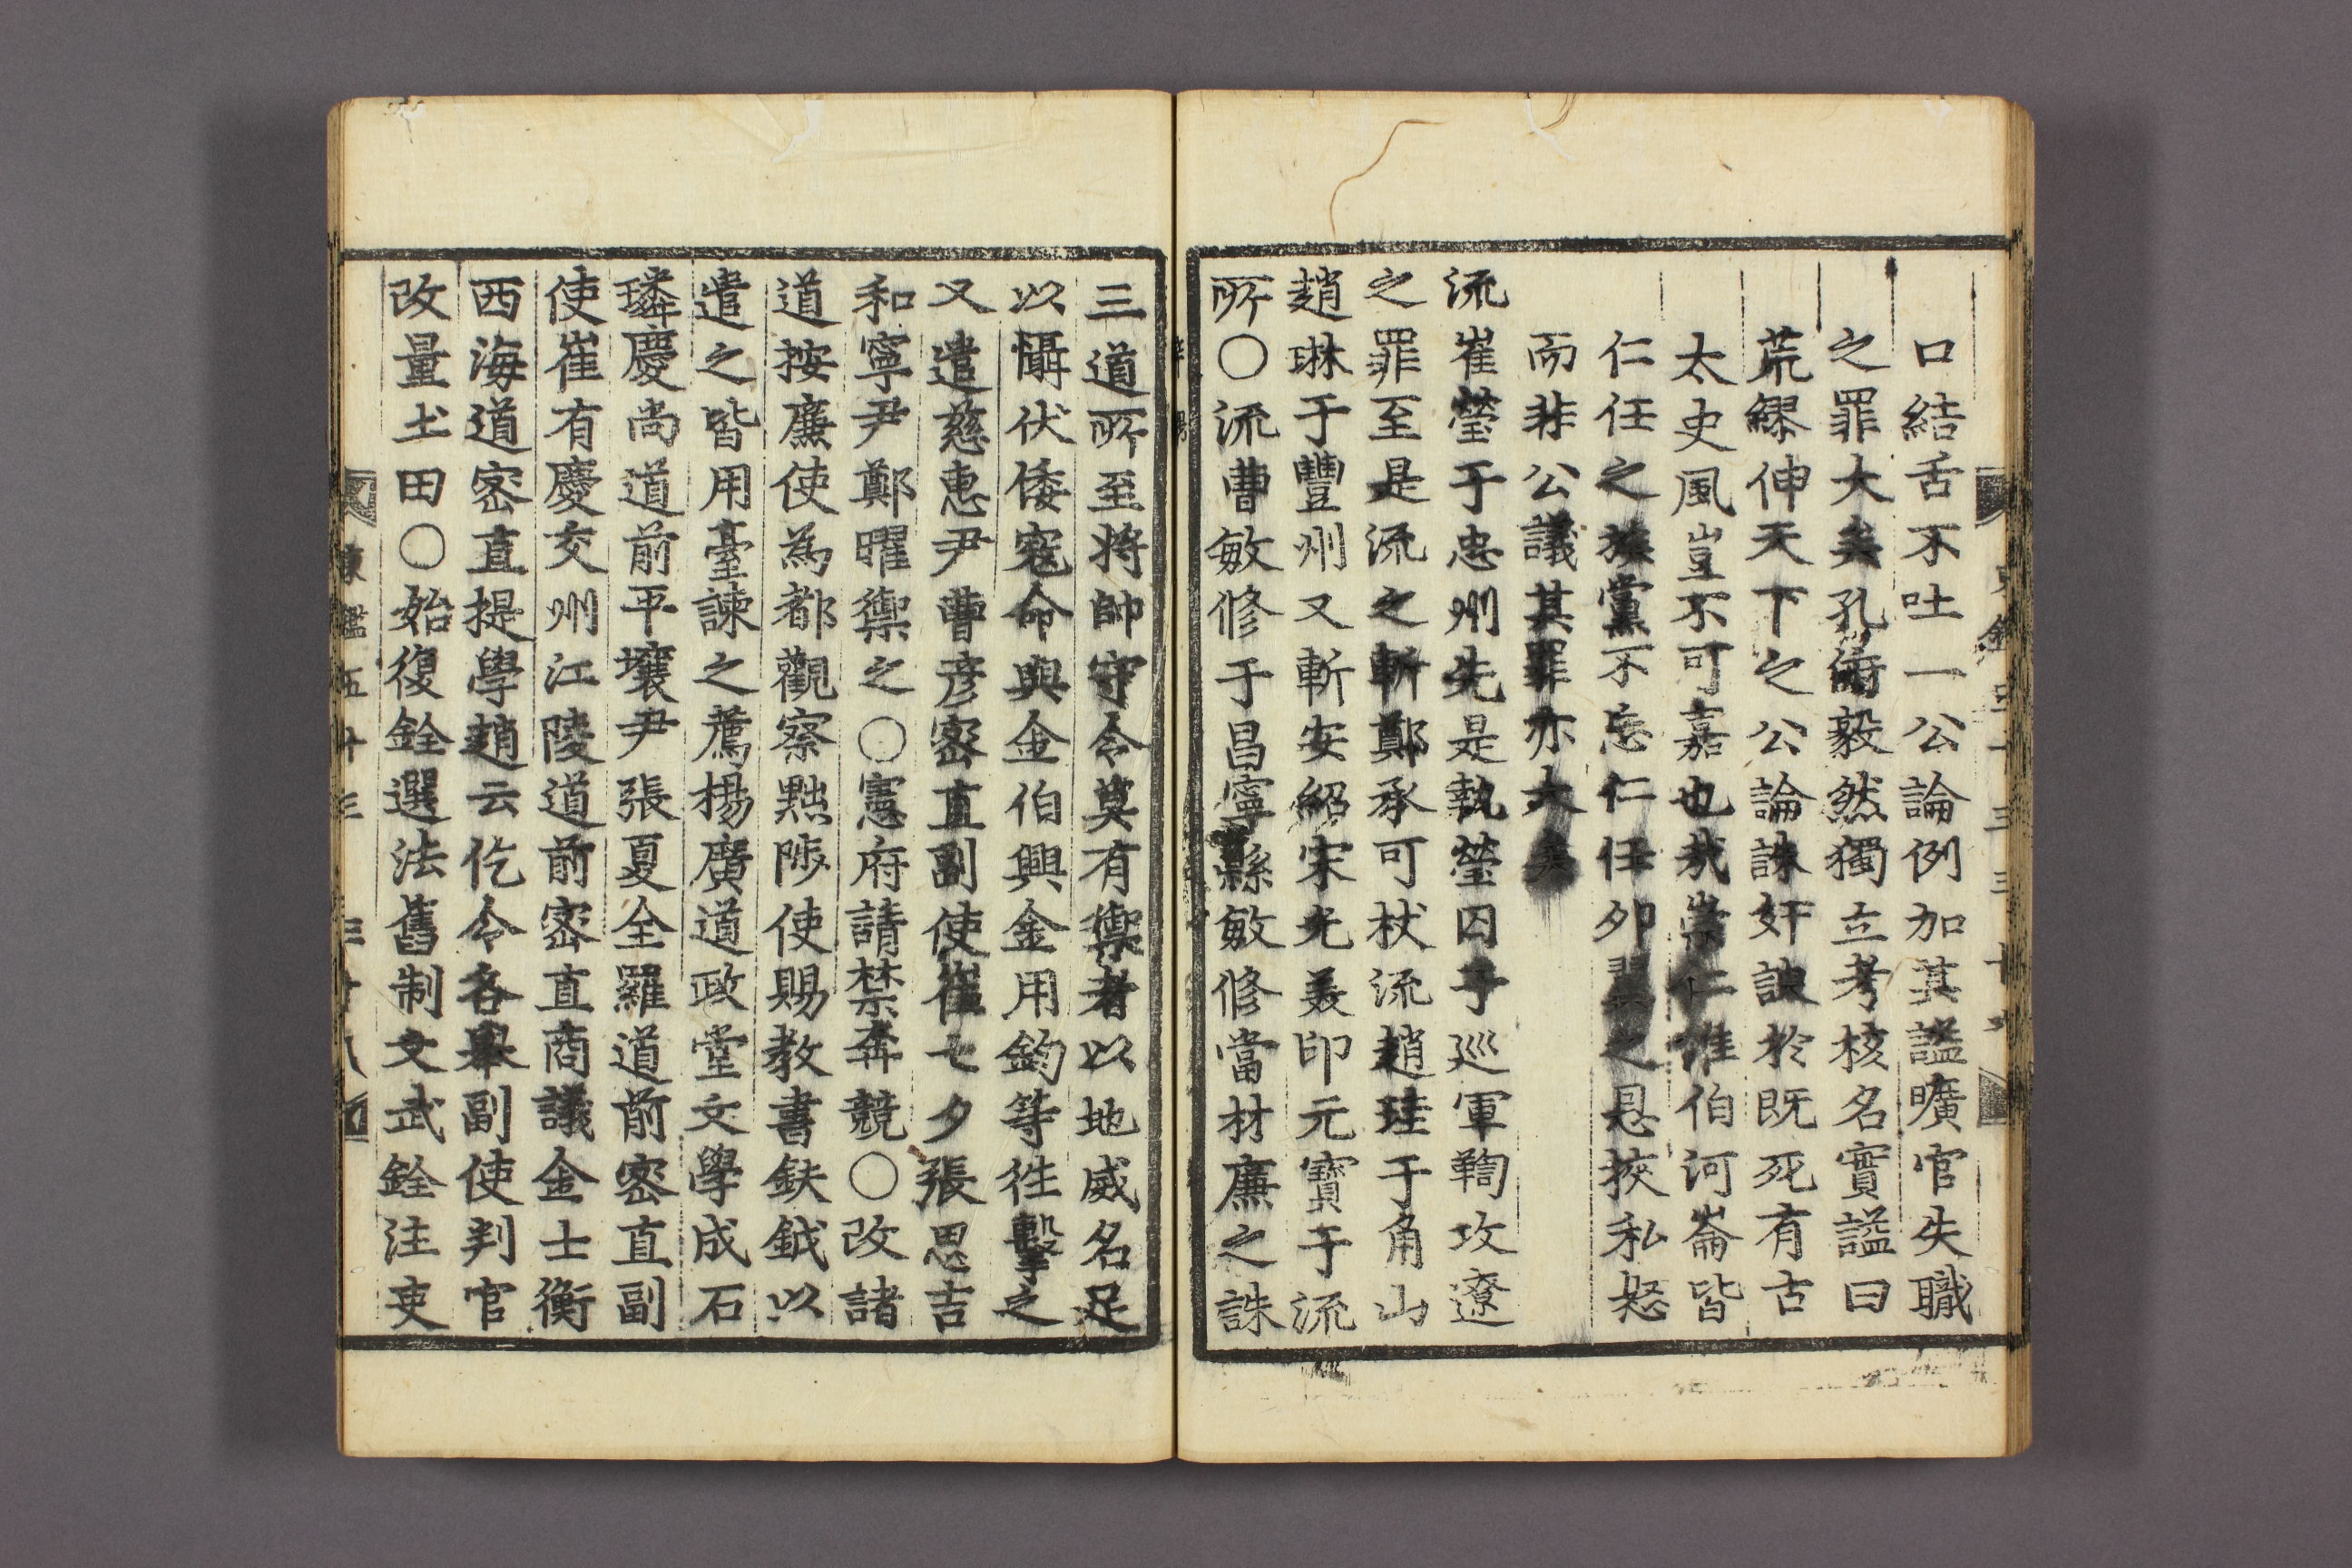 口結舌不吐一公論例加其謚曠官失職
之罪大矣孔俯毅然獨立考核名實謚曰
荒繆伸天下之公論誅奸諛於既死有古
太史風豈不可嘉也哉崇仁惟伯河崙皆
仁任之族黨不忘仁任卵翼之恩挾私怒
而非公議其罪亦大矣
流崔瑩于忠州先是執瑩囚于巡軍鞫攻遼
之罪至是流之斬鄭承可杖流趙珪于角山
趙琳于豐州又斬安紹宋光美印元寶于流
所〇流曹敏修于昌寧縣敏修當林廉之誅
三道所至將帥守令莫有禦者以地威名足
以懾伏倭寇命與金伯興金用鈞等徃擊之
又遣慈惠尹曹彦密直副使崔七夕張思吉
和寧尹鄭曜禦之〇憲府請禁奔競〇改諸
道按廉使爲都觀察黜陟使賜教書鈇鉞以
遣之皆用臺諫之薦楊廣道政堂文學成石
璘慶尚道前平壤尹張夏全羅道前密直副
使崔有慶交州江陵道前密直商議金士衡
西海道密直提學趙云仡令各舉副使判官
改量土田〇始復銓選法舊制文武銓注吏
東鑑五十三 三十八